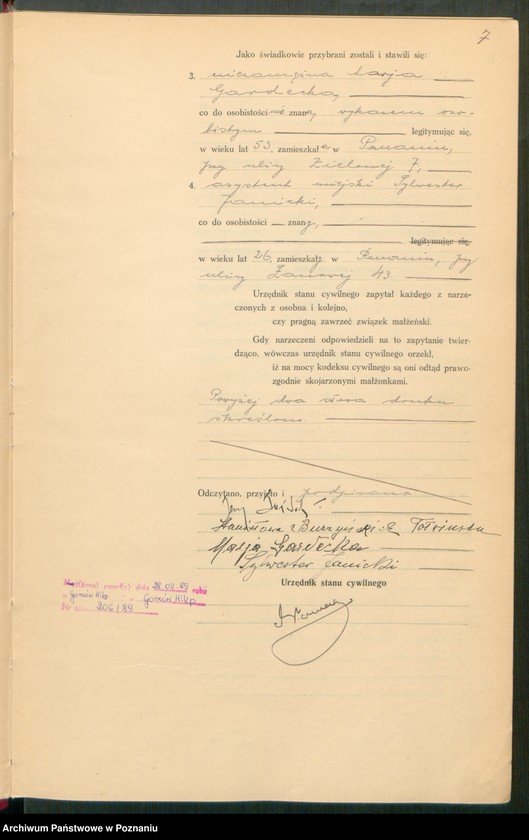 7
Jako świadkowie przybrani zostali i stawili się:
3. niezamężna Marja
Gardecka,
co do osobistości nie znaną, wykazem oso-
bistym legitymując się,
w wieku lat 53, zamieszkała w Poznaniu,
przy ulicy Zielonej 7,
4. asystent miejski Sylwester
Janicki,
co do osobistości — znany,
legitymując się,
w wieku lat 26, zamieszkały w Poznaniu, przy
ulicy 43.
Urzędnik stanu cywilnego zapytał każdego z narze-
czonych z osobna i kolejno,
czy pragną zawrzeć związek małżeński.
Gdy narzeczeni odpowiedzieli na to zapytanie twier-
dząco, wówczas urzędnik stanu cywilnego orzekł,
iż na mocy kodeksu cywilnego są oni odtąd prawo-
zgodnie skojarzonymi małżonkami.
Powyżej dwa słowa druku
skreślono.
Odczytano, przyjęto i podpisano
Jerzy
Stanisława
Marja Gardecka
Sylwester Janicki
Urzędnik stanu cywilnego
dnia 89 roku
w Gorzów Wlkp.
Nr 206/89
Archiwum Państwowe w Poznaniu